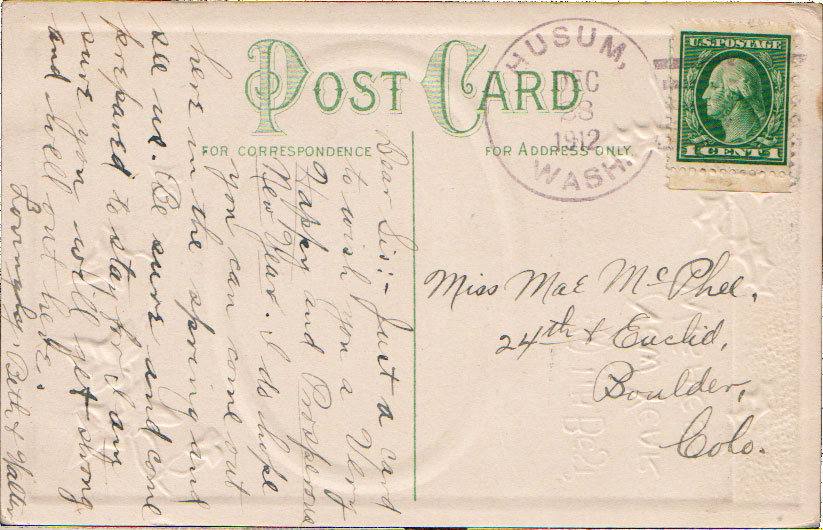 POST CARD
FOR CORRESPONDENCE
FOR ADDRESS ONLY.
HUSUM,
DEC
28
1912
WASH.
U.S. POSTAGE
1 CENT 1
Dear Sis:- Just a card
to wish you a Very
Happy and Prosperous
New Year. I do hope
you can come out
here in the spring and
see us. Be sure and come
prepared to stay for I am
sure you will get strong
and well out here.
Lovingly, Beth & Walter
Miss Mae McPhee.
24th & Euclid,
Boulder,
Colo.